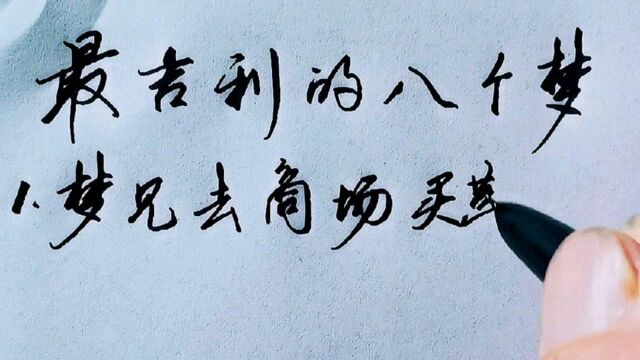 最吉利的八个梦
1.梦见去商场买